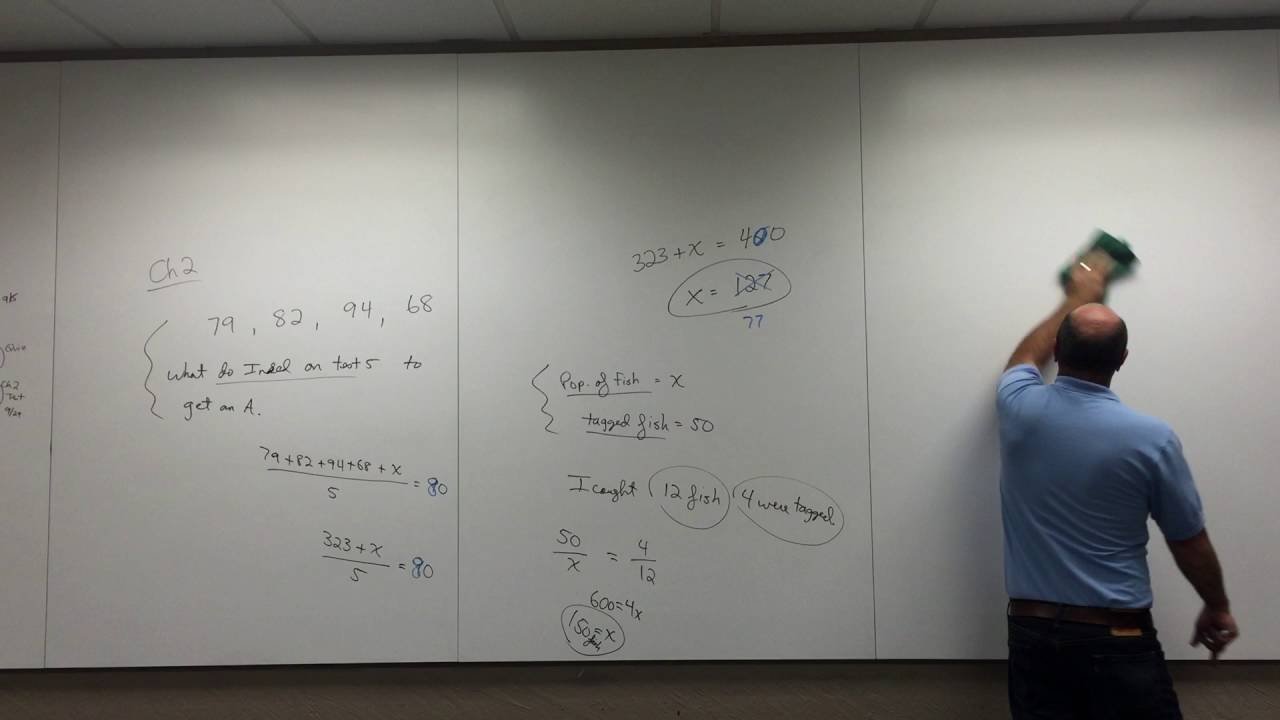 9/5
Ch2
Tst
9/29
Ch 2
79, 82, 94, 68
What do I need on test 5 to
get an A.
79+82+94+68+x
5
= 80
323+x
5
= 80
323+x = 400
x = 127
77
Pop. of Fish = x
tagged fish = 50
I caught 12 fish 4 were tagged
50/x = 4/12
600=4x
150=x